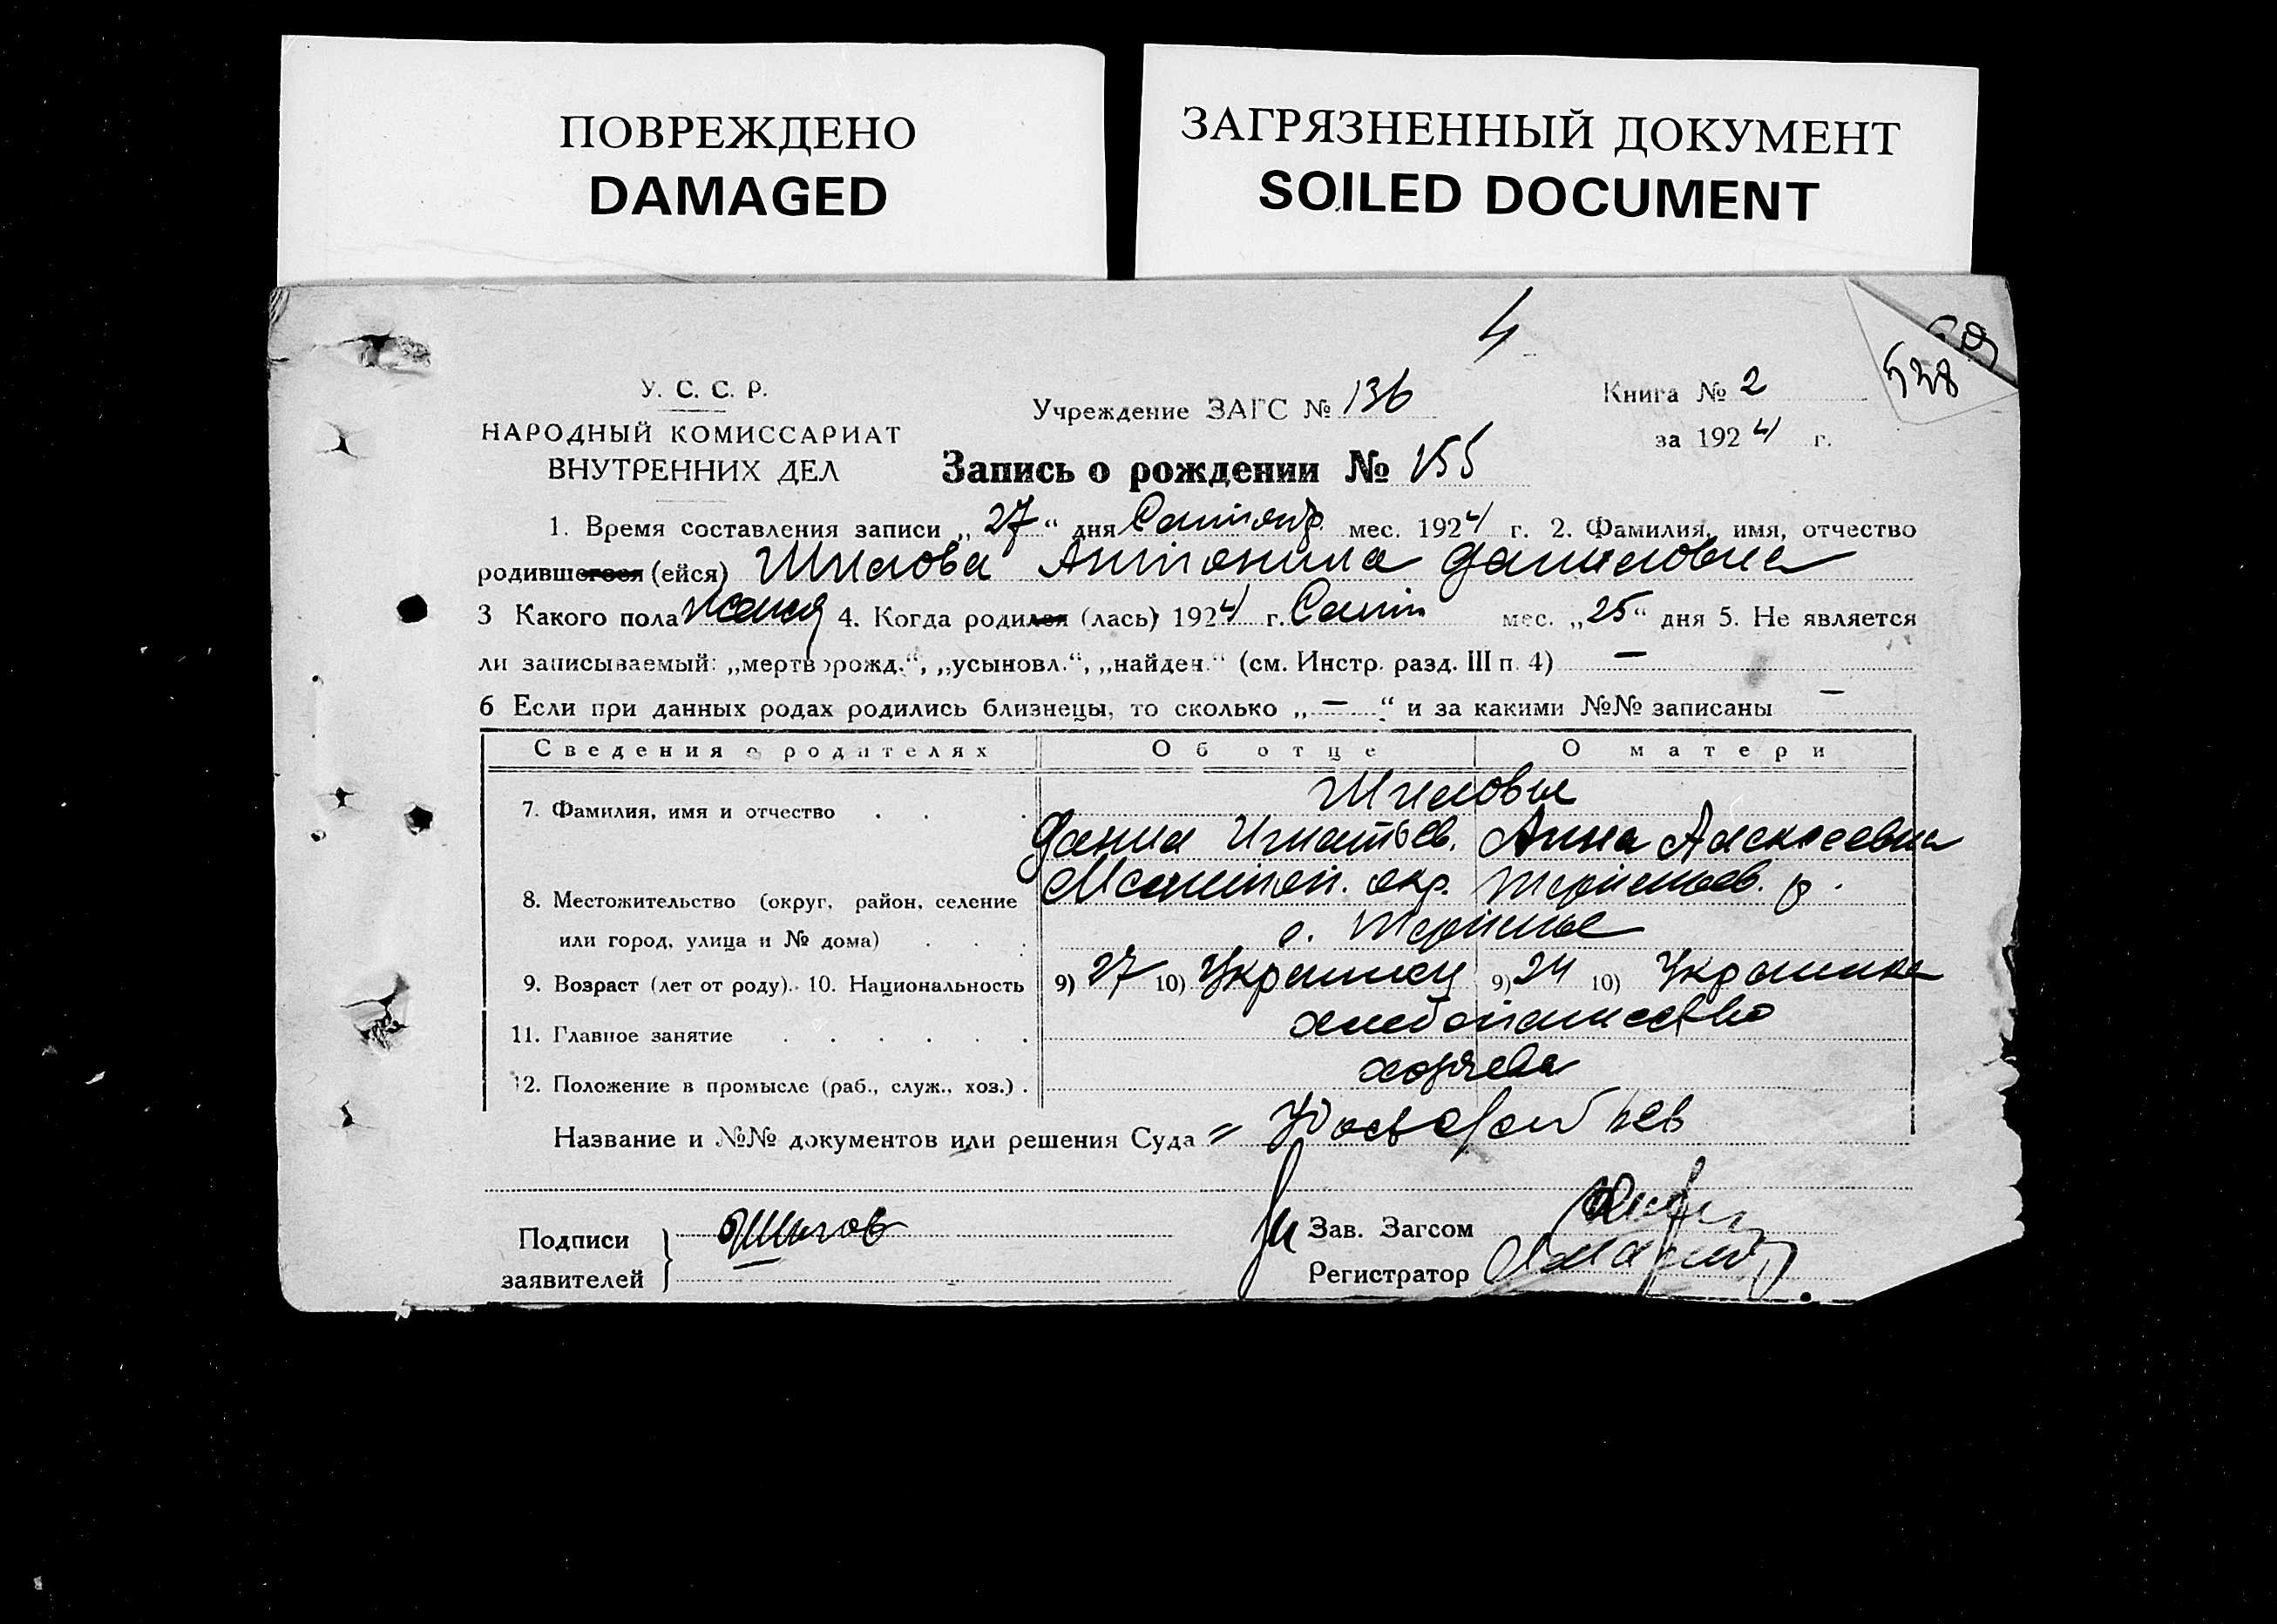 ПОВРЕЖДЕНО
DAMAGED
ЗАГРЯЗНЕННЫЙ ДОКУМЕНТ
SOILED DOCUMENT
4
538
У. С. С. Р.
НАРОДНЫЙ КОМИССАРИАТ
ВНУТРЕННИХ ДЕЛ
Учреждение ЗАГС № 136
Книга № 2
за 1924 г.
Запись о рождении № 155
1. Время составления записи „ 27 “ дня мес. 1924 г. 2. Фамилия, имя, отчество
родившегося (ейся) Антонина Даниловна
3 Какого пола женск 4. Когда родился (лась) 1924 г. Сент мес. „ 25 “ дня 5. Не является
ли записываемый: „мертворожд.“, „усыновл.“, „найден.“ (см. Инстр. разд. III п. 4) —
6 Если при данных родах родились близнецы, то сколько „ — “ и за какими №№ записаны —
Сведения о родителях Об отце О матери
7. Фамилия, имя и отчество
Данил Игнатьев. Анна Алексеевна
8. Местожительство (округ, район, селение Мелитоп. окр. Терпеньев. р.
или город, улица и № дома) с. Терпенье
9. Возраст (лет от роду). 10. Национальность 9) 27 10) Украинец 9) 24 10) Украинка
11. Главное занятие хлебопашество
12. Положение в промысле (раб., служ., хоз.) хозяева
Название и №№ документов или решения Суда
Подписи
заявителей
Зав. Загсом
Регистратор